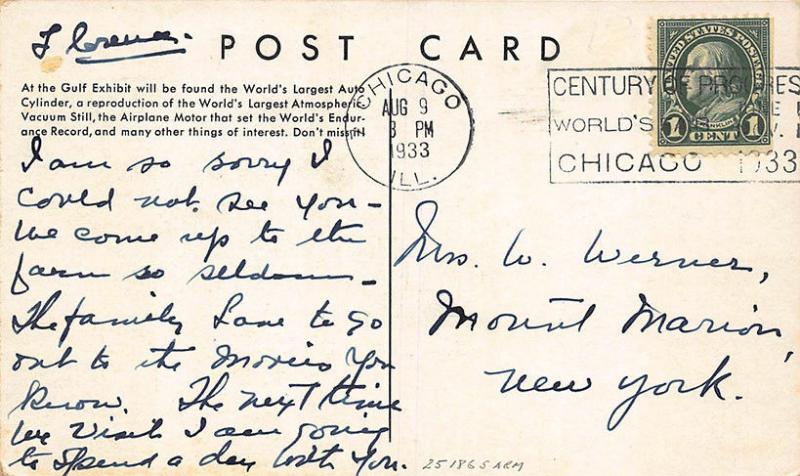 Florence.
POST CARD
At the Gulf Exhibit will be found the World's Largest Auto
Cylinder, a reproduction of the World's Largest Atmospheric
Vacuum Still, the Airplane Motor that set the World's Endur-
ance Record, and many other things of interest. Don't miss it!
CHICAGO
AUG 9
3 PM
1933
ILL.
CENTURY OF PROGRESS
WORLD'S
CHICAGO 1933
UNITED STATES POSTAGE
FRANKLIN
1 CENT 1
I am so sorry I
could not see you -
We come up to the
farm so seldom -
The family Love to go
out to the Movies you
know. The next time
we visit I am going
to spend a day with you.
Mrs. W. Werner,
Mount Marion,
New York.
251865 ARM